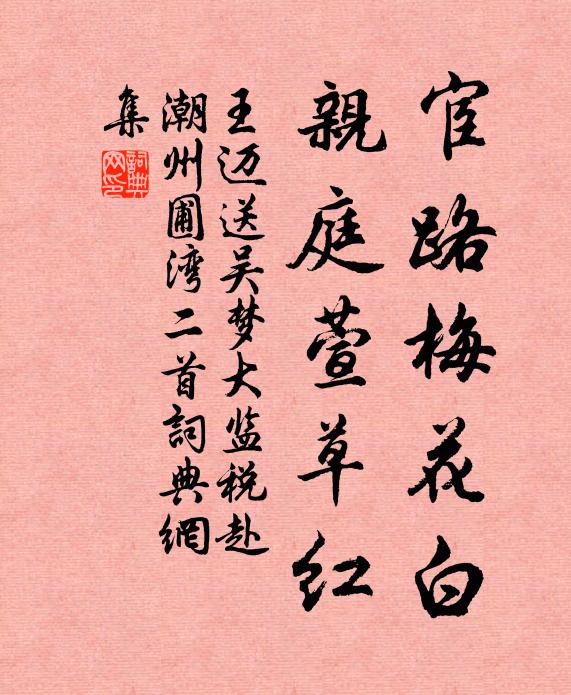 宦路梅花白
親庭萱草红
王迈送吴梦大监税赴
潮州圃湾二首詞典網
集
詞典網印